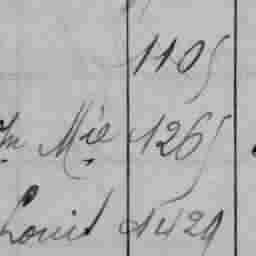 1105
Mie 1265
Louis 1429